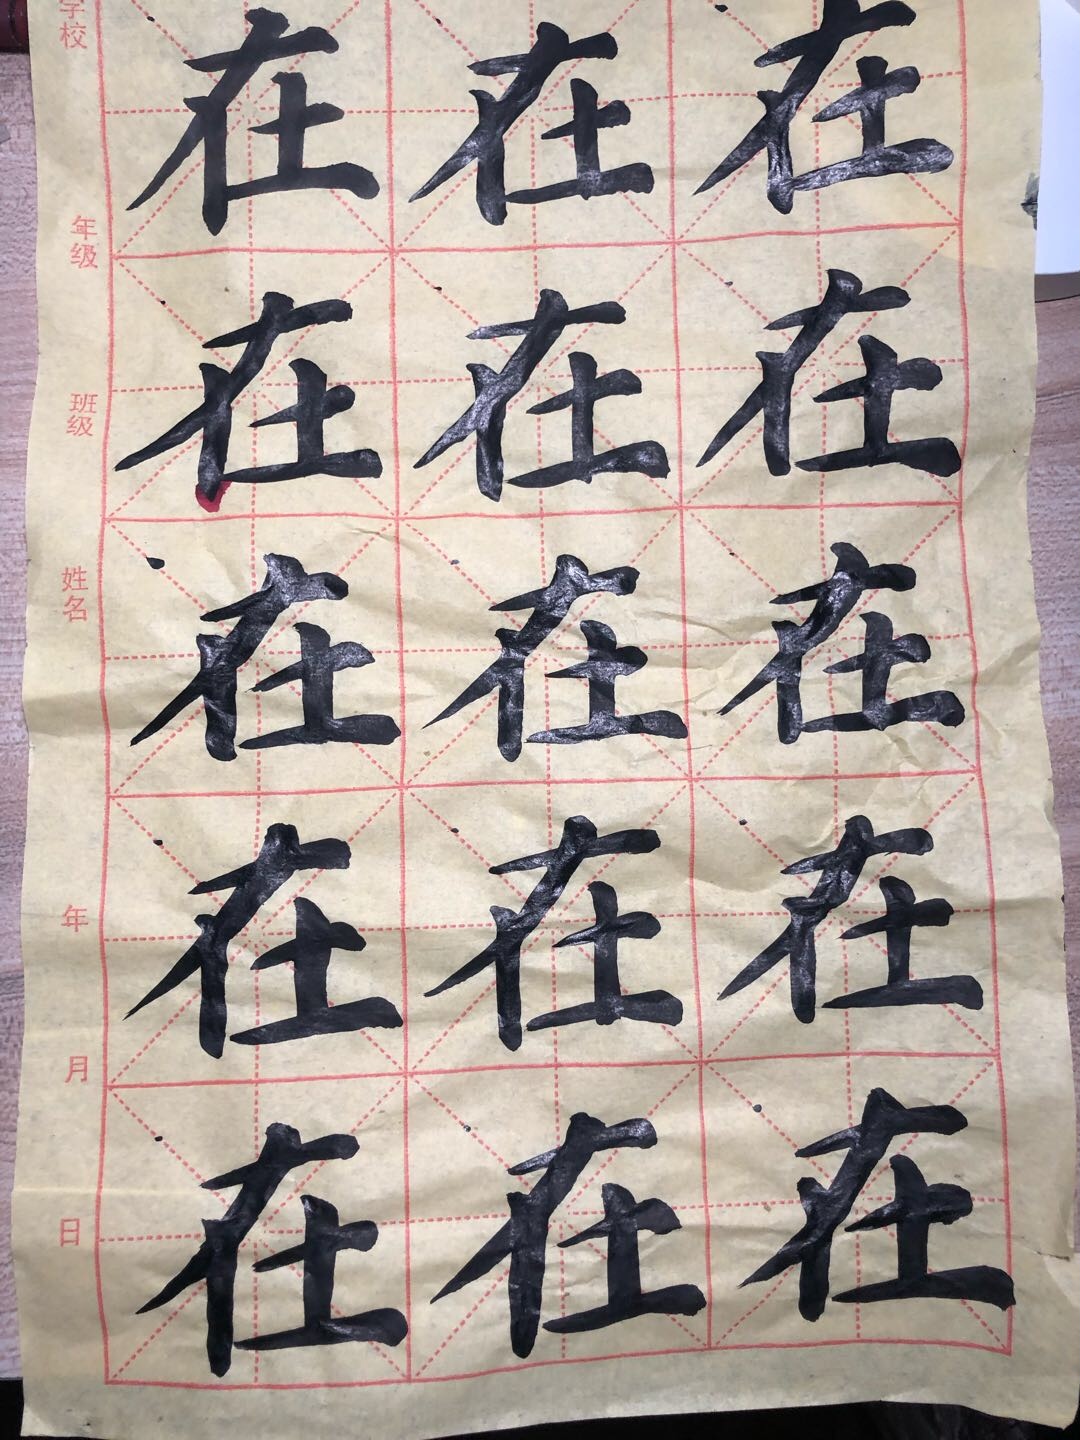 学校
年级
班级
姓名
年
月
日
在 在 在
在 在 在
在 在 在
在 在 在
在 在 在